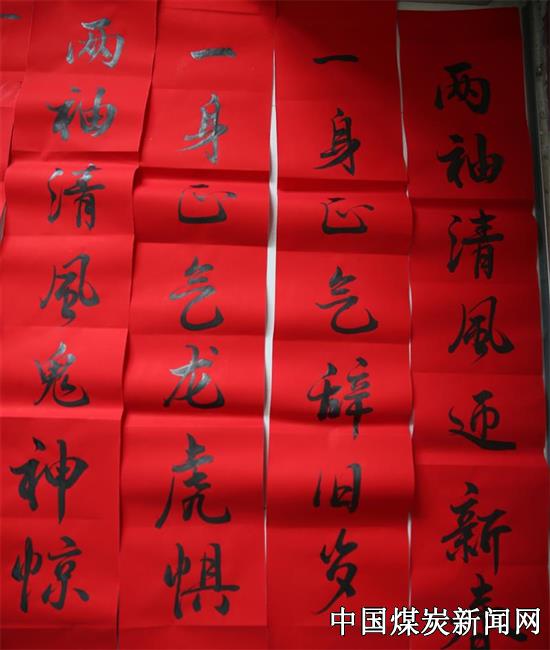 两袖清風鬼神惊
一身正气龙虎惧
一身正气辞旧岁
两袖清風迎新春
中国煤炭新闻网